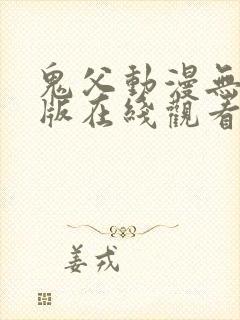 鬼父動漫無
版在綫觀看
姜戎